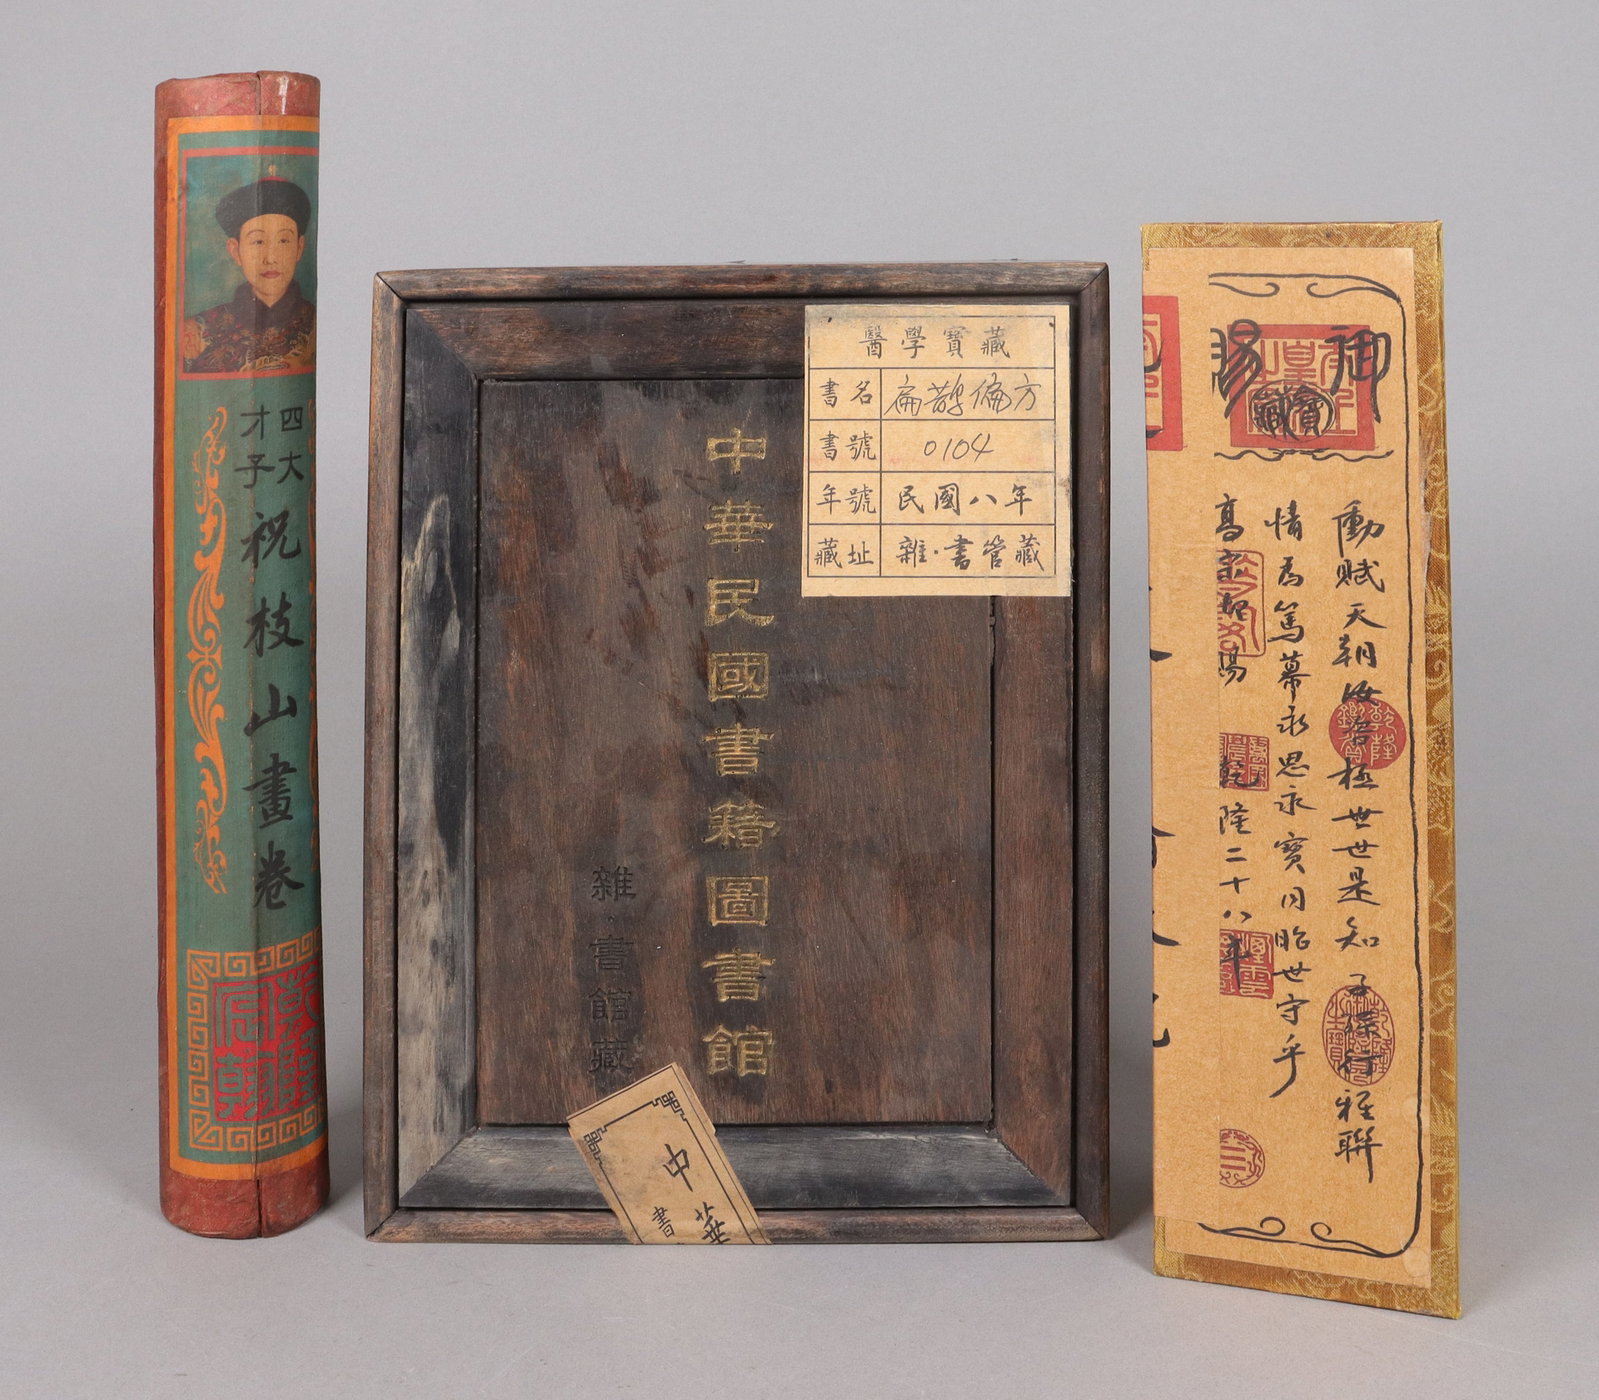 四大
才子
祝枝山畫卷
中華民國書籍圖書館
雜·書館藏
醫學寶藏
書名 扁鹊偏方
書號 0104
年號 民國八年
藏址 雜·書管藏
中華
書
御賜
寶藏
勳賦天朝汝為極世世是知子孫行雅聯
情為篤慕永思永寶同昭世守乎
高宗賜
乾隆二十八年